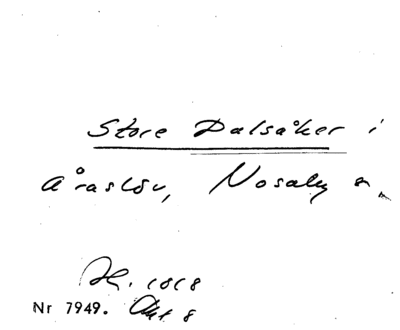 Store Dalsåker i
Åraslöv, Nosaby s.
1818
Nr 7949. Akt 8